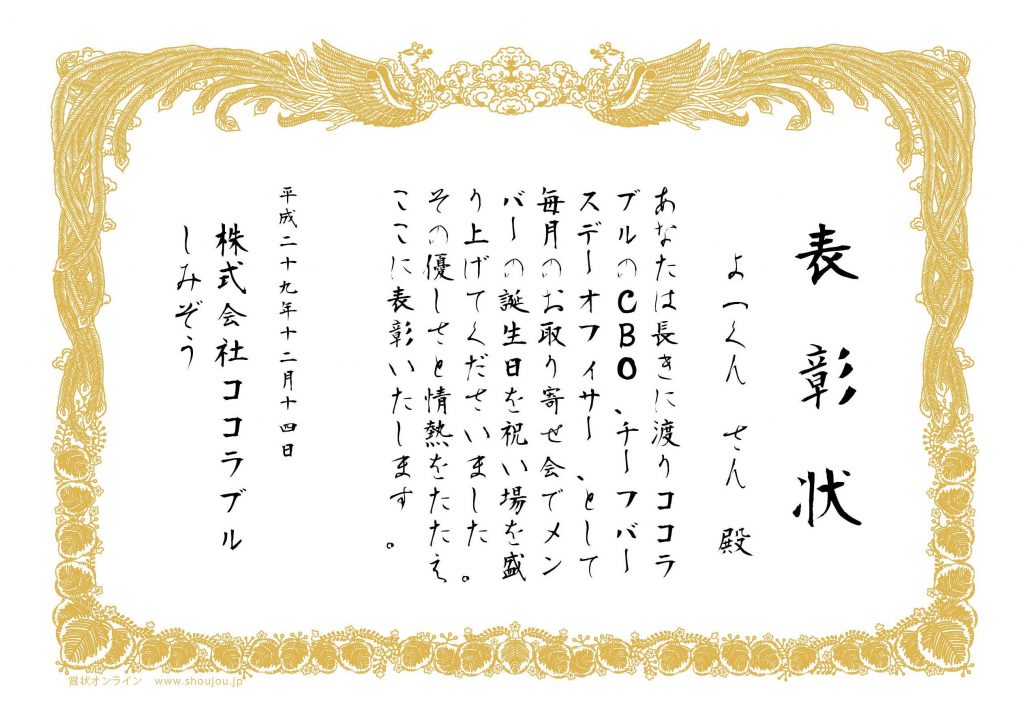 表彰状
よつくん さん 殿
あなたは長きに渡りココラ
ブルのCBO、チーフバー
スデーオフィサー、として
毎月のお取り寄せ会でメン
バーの誕生日を祝い場を盛
り上げてくださいました。
その優しさと情熱をたたえ
ここに表彰いたします。
平成二十九年十二月十四日
株式会社ココラブル
しみぞう
賞状オンライン www.shoujou.jp